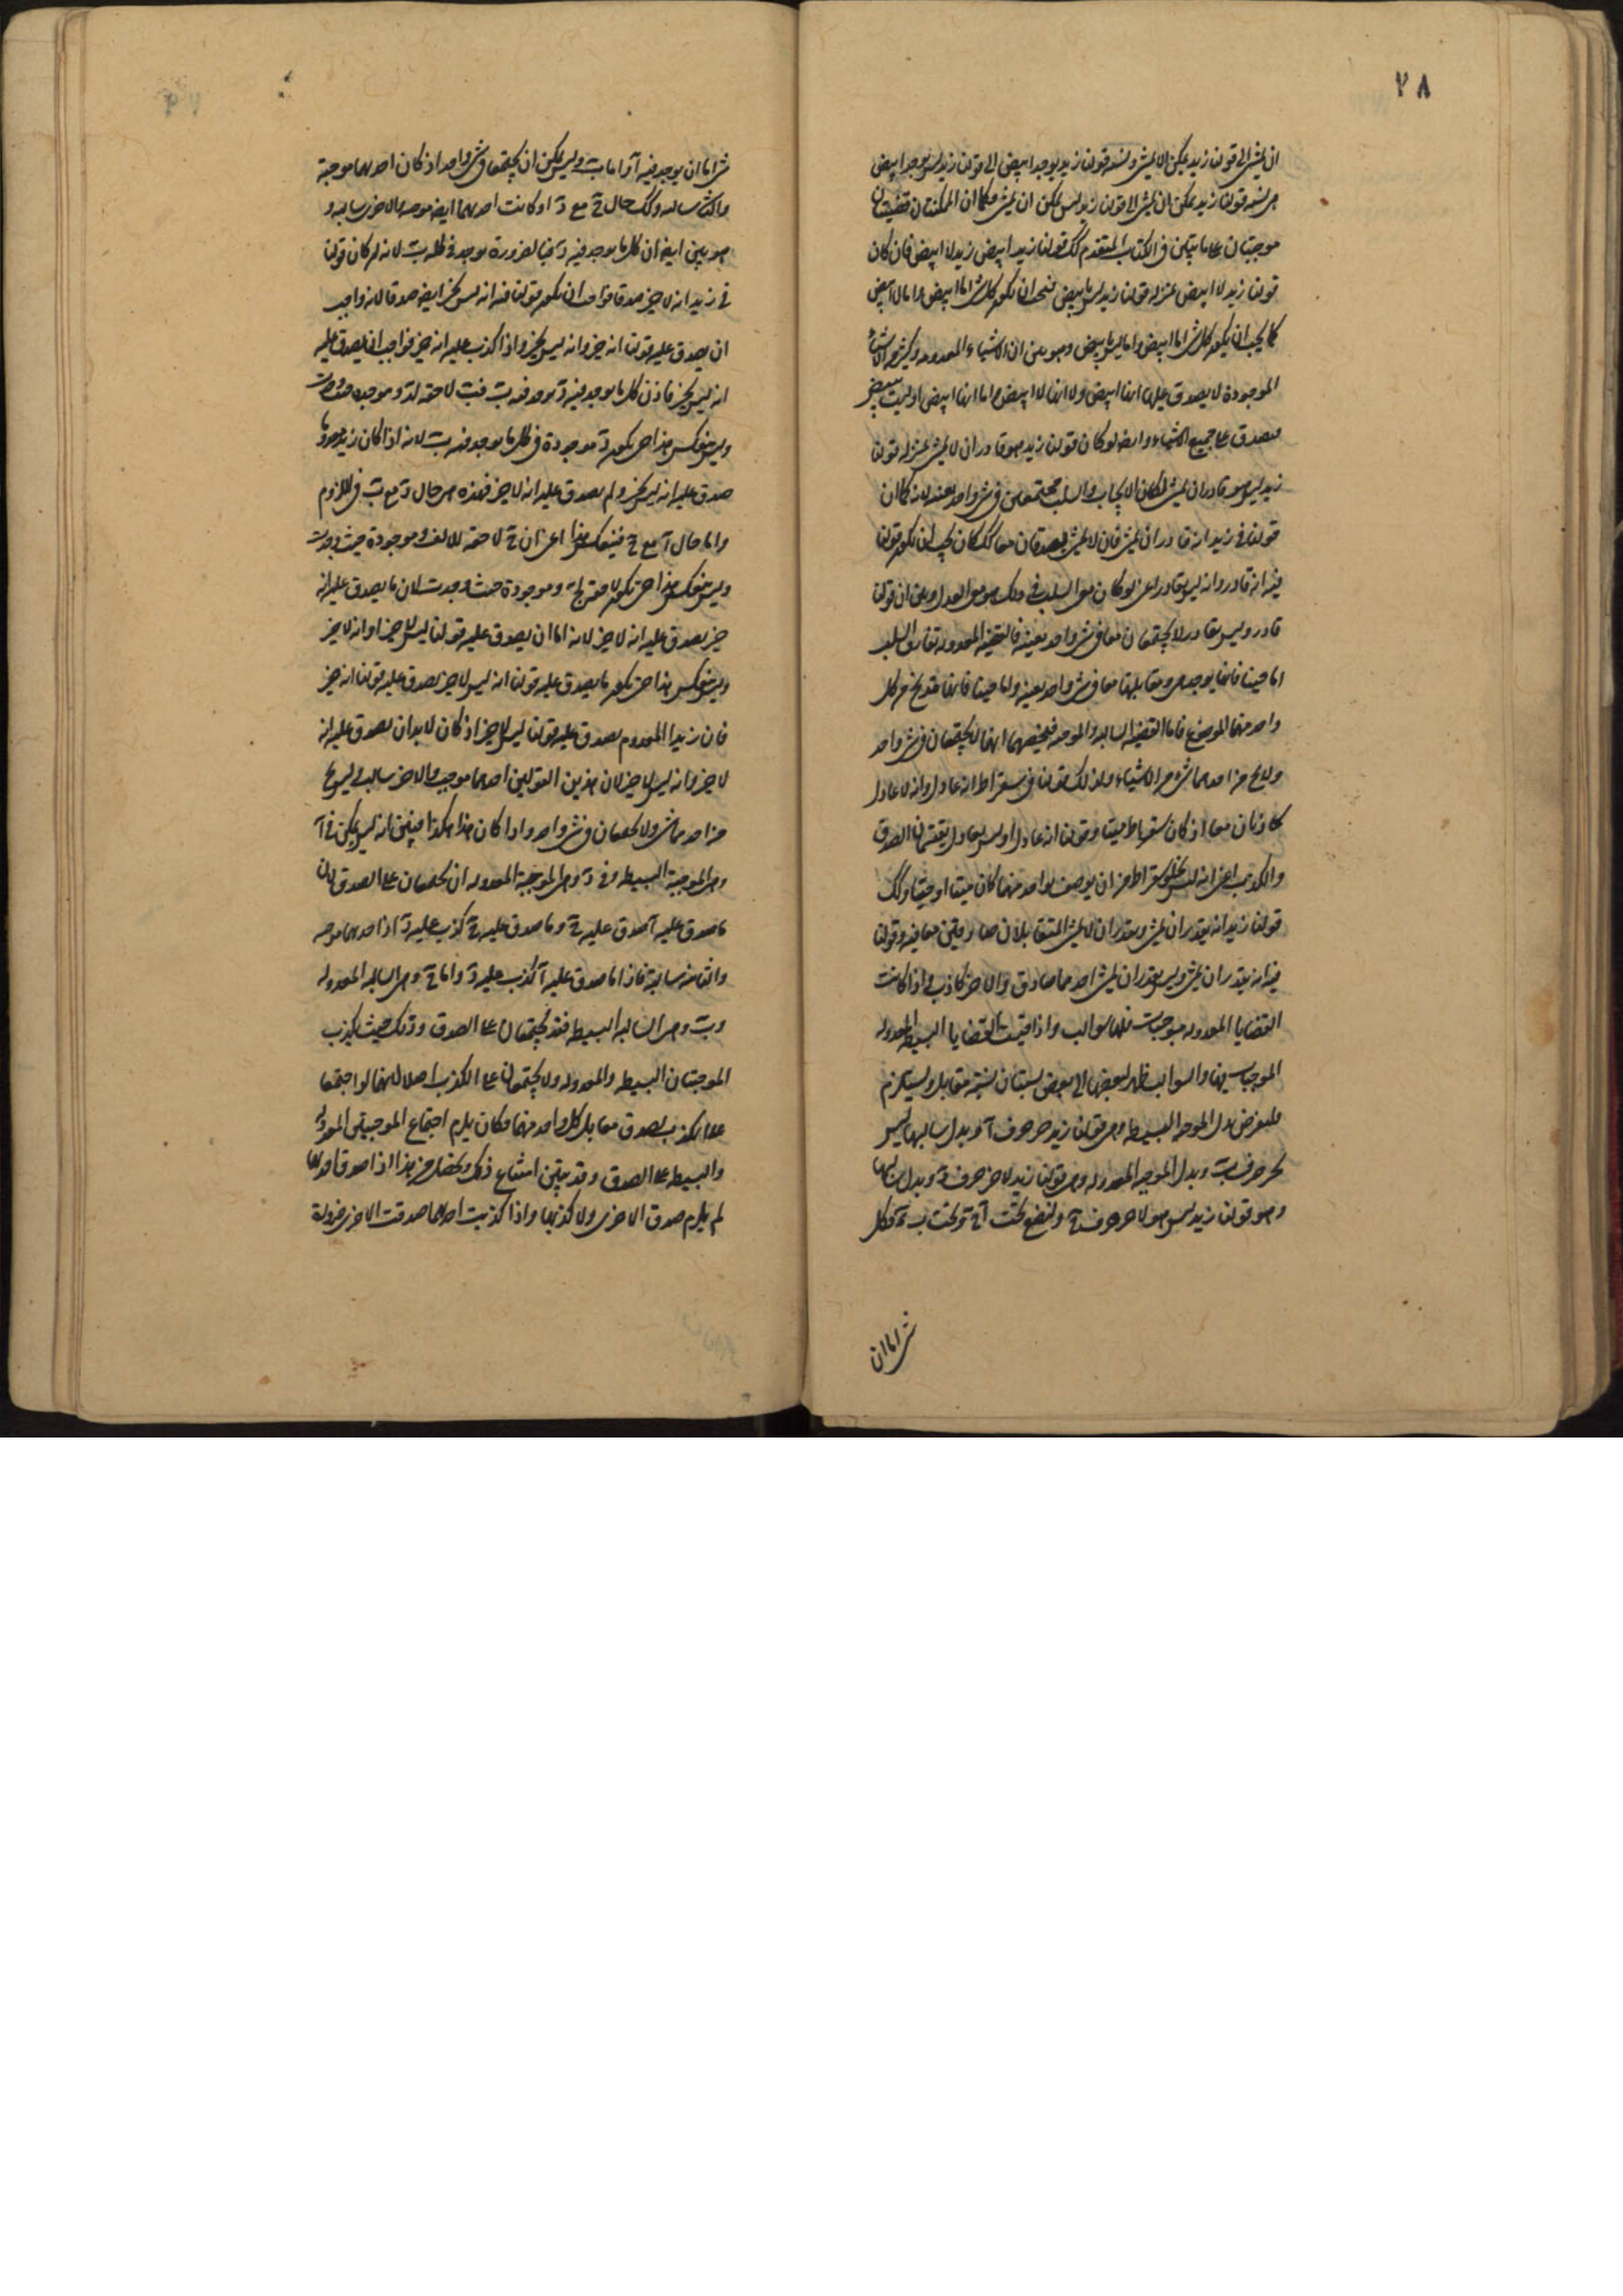 ٢٨
ان يمشى الى قولنا زيد يمكن ان لا يمشى ونسبة قولنا زيد يوجد ابيض الى قولنا زيد ليس يوجد ابيض
هى نسبة قولنا زيد يمكن ان يمشى الى قولنا زيد ليس يمكن ان يمشى فكما ان الممكنتان قضيتان
موجبتان على ما تبين فى الكتاب المتقدم كك قولنا زيد ابيض زيد لا ابيض فان كان
قولنا زيد لا ابيض بمنزلة قولنا زيد ليس بابيض فيجب ان يكون كل شى اما ابيض و اما لا ابيض
كما يجب ان يكون كل شى اما ابيض و اما ليس بابيض وهو بين ان الاشياء المعدومة وكثير من الاشياء
الموجودة لا يصدق عليها انها ابيض ولا انها لا ابيض و اما انها ابيض او ليست بابيض
فيصدق على جميع الاشياء وايضا لو كان قولنا زيد هو قادر ان لا يمشى بمنزلة قولنا
زيد ليس هو قادر ان يمشى لكان الايجاب والسلب مجتمعين فى شى واحد بعينه لانه كما ان
قولنا فى زيد انه قادر ان يمشى فان لا يمشى يصدقان معا كك كان يجب ان يكون قولنا
فيه انه قادر وانه ليس بقادر اعنى لو كان معنى السلب فى ذلك هو معنى العدل وبين ان قولنا
قادر وليس بقادر لا يجتمعان معا فى شى واحد بعينه فالقضية المعدولة تفارق السلب
اما حينا فانها يوجد هى ومقابلها معا فى شى واحد بعينه واما حينا فانها قد يخ من كل
واحد منهما الموضوع فاما القضية السالبة والموجبة فيخصهما انهما لا يجتمعان فى شى واحد
ولا يخ من احدهما شى من الاشياء ولذلك قولنا فى سقراط انه عادل وانه لا عادل
كاذبان معا اذ كان سقراط ميتا وقولنا انه عادل او ليس بعادل يقتسمان الصدق
والكذب اعنى انه ليس يخلو سقراط من ان يوصف بواحد منهما كان ميتا او حيا وكك
قولنا زيد انه يقدر ان يمشى ويقدر ان لا يمشى المتقابلان صادقين معا فيه وقولنا
فيه انه يقدر ان يمشى وليس يقدر ان يمشى احدهما صادق والاخر كاذب واذا كانت
القضايا المعدولة موجبات فلها سوالب واذا قيست القضايا البسيطة المعدولة
الموجبات منها والسوالب ظهر لبعضها الى بعض نسبتان نسبة تقابل ونسبة تلازم
فليفرض بدل الموجبة البسيطة وهى قولنا زيد خير حرف آ وبدل سالبها ليس
بخير حرف ب وبدل الموجبة المعدولة وهى قولنا زيد لا خير حرف د وبدل سالبها
وهو قولنا زيد ليس هو لا خير حرف ج ولنضع تحت آ ج وتحت ب د فكل
شى اما ان
شى اما ان يوجد فيه آ واما ب وليس يمكن ان يجتمعا فى شى واحد اذ كان احدهما موجبة
والثانى سالبة وكك حال ج مع د اذ كانت احدهما ايضا موجبة والاخرى سالبة و
هو بين ايضا ان كل ما يوجد فيه د فبالضرورة يوجد فى كله ب لانه لو كان قولنا
فى زيد انه لا خير صدقا فواجب ان يكون قولنا فيه انه ليس بخير ايضا صدقا لانه واجب
ان يصدق عليه قولنا انه خير وانه ليس بخير واذا كذب عليه انه خير فواجب ان يصدق عليه
انه ليس بخير فاذن كل ما يوجد فيه د يوجد فيه ب فب لاحقة لد وموجودة حيث وجدت
وليس ينعكس هذا حتى يكون د موجودة فى كل ما يوجد فيه ب لانه اذا كان زيد معدوما
صدق عليه انه ليس بخير ولم يصدق عليه انه لا خير فهذه هى حال د مع ب فى اللزوم
واما حال آ مع ج فينعكس هذا اعنى ان ج لاحقة للالف وموجودة حيث وجدت
وليس ينعكس هذا حتى يكون آ لاحقة لج وموجودة حيث وجدت لان ما يصدق عليه انه
خير يصدق عليه انه لا خير لانه اما ان يصدق عليه قولنا ليس لا خير او انه لا خير
وليس ينعكس هذا حتى يكون ما يصدق عليه قولنا انه ليس لا خير يصدق عليه قولنا انه خير
فان زيدا المعدوم يصدق عليه قولنا ليس لا خير اذ كان لا بد ان يصدق عليه انه
لا خير وانه ليس لا خير لان هذين القولين احدهما موجب والاخر سالب وليس يخ
من احدهما شى ولا يجتمعان فى شى واحد واذا كان هذا هكذا فبين انه ليس يمكن فى آ
وهى الموجبة البسيطة وفى د وهى الموجبة المعدولة ان يجتمعان على الصدق لان
ما صدق عليه آ صدق عليه ج وما صدق عليه ج كذب عليه د اذ احدهما موجبة
والثانية سالبة فاذا ما صدق عليه آ كذب عليه د واما ج وهى السالبة المعدولة
وب وهى السالبة البسيطة فقد يجتمعان على الصدق وذلك حيث يكذب
الموجبتان البسيطة والمعدولة ولا يجتمعان على الكذب اصلا لانهما لو اجتمعا
على الكذب لصدق مقابل كل واحد منهما فكان يلزم اجتماع الموجبتين المعدولة
والبسيطة على الصدق وقد تبين امتناع ذلك ويحصل من هذا اذا صدق احدهما
لم يلزم صدق الاخرى ولا كذبها واذا كذبت احدهما صدقت الاخرى ضرورة